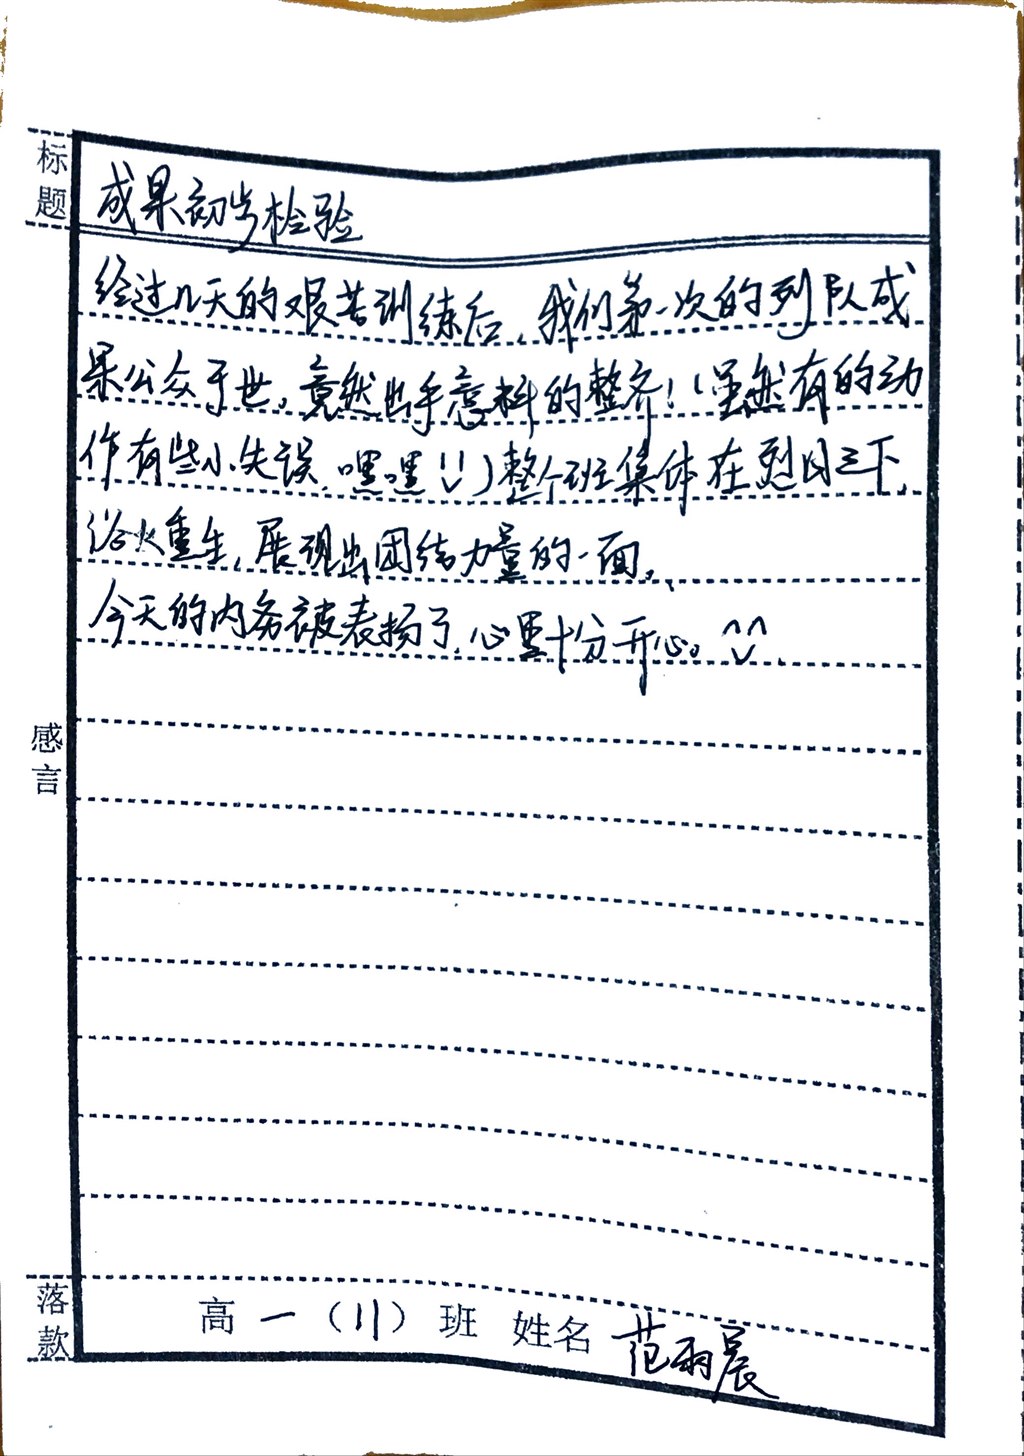 标题
成果初步检验
经过几天的艰苦训练后，我们第一次的列队成
果公众于世。竟然出乎意料的整齐！（虽然有的动
作有些小失误，嘿嘿）整个班集体在烈日之下，
浴火重生，展现出团结力量的一面。
今天的内务被表扬了，心里十分开心。^^
感言
落款
高一（11）班 姓名 范雨晨